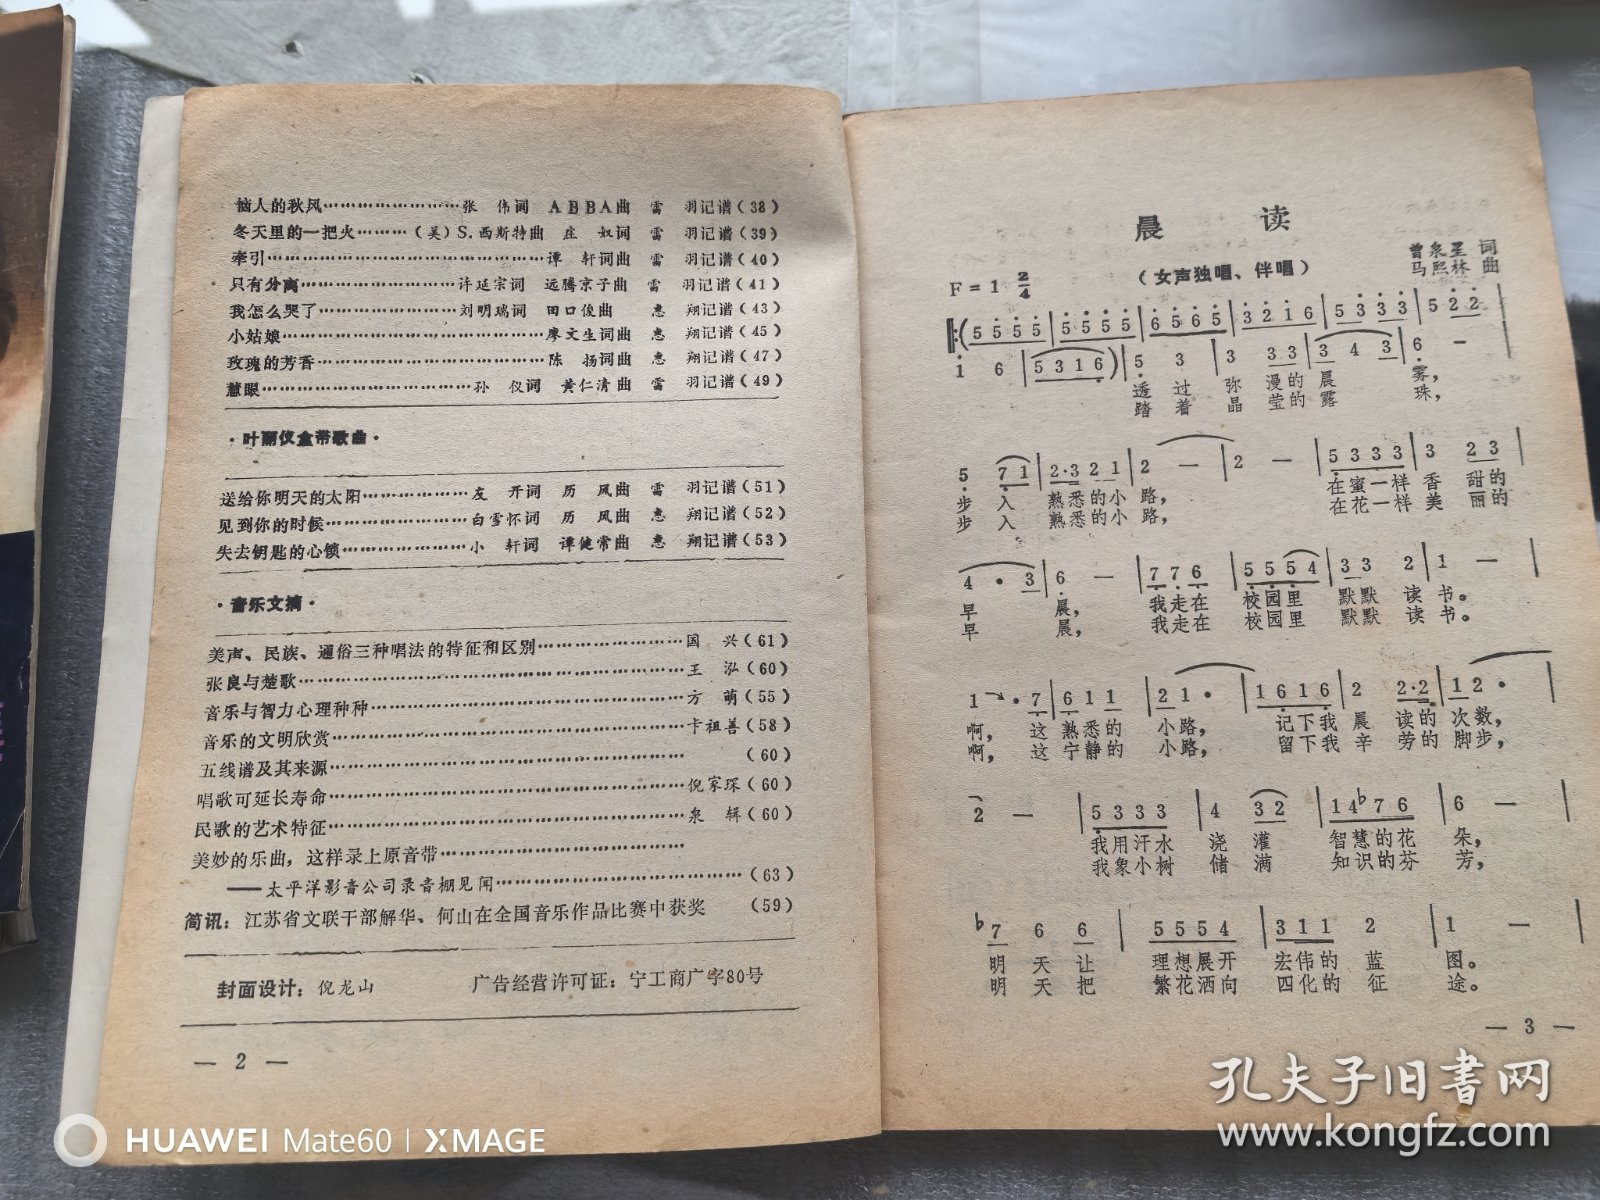 恼人的秋风……………………张 伟词 ABBA曲 雷 羽记谱(38)
冬天里的一把火………(英)S.西斯特曲 庄 奴词 雷 羽记谱(39)
牵引……………………………………………谭 轩词曲 雷 羽记谱(40)
只有分离………………………许廷宗词 远腾京子曲 雷 羽记谱(41)
我怎么哭了……………………刘明瑞词 田口俊曲 惠 翔记谱(43)
小姑娘…………………………………………廖文生词曲 惠 翔记谱(45)
玫瑰的芳香……………………………………陈 扬词曲 惠 翔记谱(47)
慧眼…………………………………孙 仪词 黄仁清曲 雷 羽记谱(49)
·叶丽仪盒带歌曲·
送给你明天的太阳………………友 开词 历 风曲 雷 羽记谱(51)
见到你的时候……………………白雪怀词 历 风曲 惠 翔记谱(52)
失去钥匙的心锁…………………小 轩词 谭健常曲 惠 翔记谱(53)
·音乐文摘·
美声、民族、通俗三种唱法的特征和区别……………………国 兴(61)
张良与楚歌……………………………………………………………王 泓(60)
音乐与智力心理种种…………………………………………………方 萌(55)
音乐的文明欣赏………………………………………………………卞祖善(58)
五线谱及其来源……………………………………………………… (60)
唱歌可延长寿命………………………………………………………倪家琛(60)
民歌的艺术特征………………………………………………………泉 辑(60)
美妙的乐曲，这样录上原音带………………………………
——太平洋影音公司录音棚见闻…………………………………(63)
简讯：江苏省文联干部解华、何山在全国音乐作品比赛中获奖 (59)
封面设计：倪龙山 广告经营许可证：宁工商广字80号
— 2 —
晨 读
(女声独唱、伴唱)
曾泉星 词
马熙林 曲
F = 1 2/4
‖:(5 5 5 5 | 5 5 5 5 | 6 5 6 5 | 3 2 1 6 | 5 3 3 3 | 5 2 2 |
1 6 | 5 3 1 6) | 5 3 | 3 3 3 | 3 4 3 | 6 — |
透 过 弥 漫 的 晨 雾，
踏 着 晶 莹 的 露 珠，
5 7 1 | 2·3 2 1 | 2 — | 2 — | 5 3 3 3 | 3 2 3 |
步 入 熟悉的小 路， 在蜜一样 香 甜的
步 入 熟悉的小 路， 在花一样 美 丽的
4 · 3 | 6 — | 7 7 6 | 5 5 5 4 | 3 3 2 | 1 — |
早 晨， 我走在 校园里 默默 读 书。
早 晨， 我走在 校园里 默默 读 书。
1 · 7 | 6 1 1 | 2 1 · | 1 6 1 6 | 2 2·2 | 1 2 · |
啊， 这 熟悉的 小路， 记下我 晨 读的 次数，
啊， 这 宁静的 小路， 留下我 辛 劳的 脚步，
2 — | 5 3 3 3 | 4 3 2 | 1 4 ♭7 6 | 6 — |
我用汗水 浇 灌 智慧的花 朵，
我象小树 储 满 知识的芬 芳，
♭7 6 6 | 5 5 5 4 | 3 1 1 2 | 1 — |
明 天 让 理想展开 宏伟的 蓝 图。
明 天 把 繁花洒向 四化的 征 途。
— 3 —
孔夫子旧书网
www.kongfz.com
HUAWEI Mate60 | XMAGE